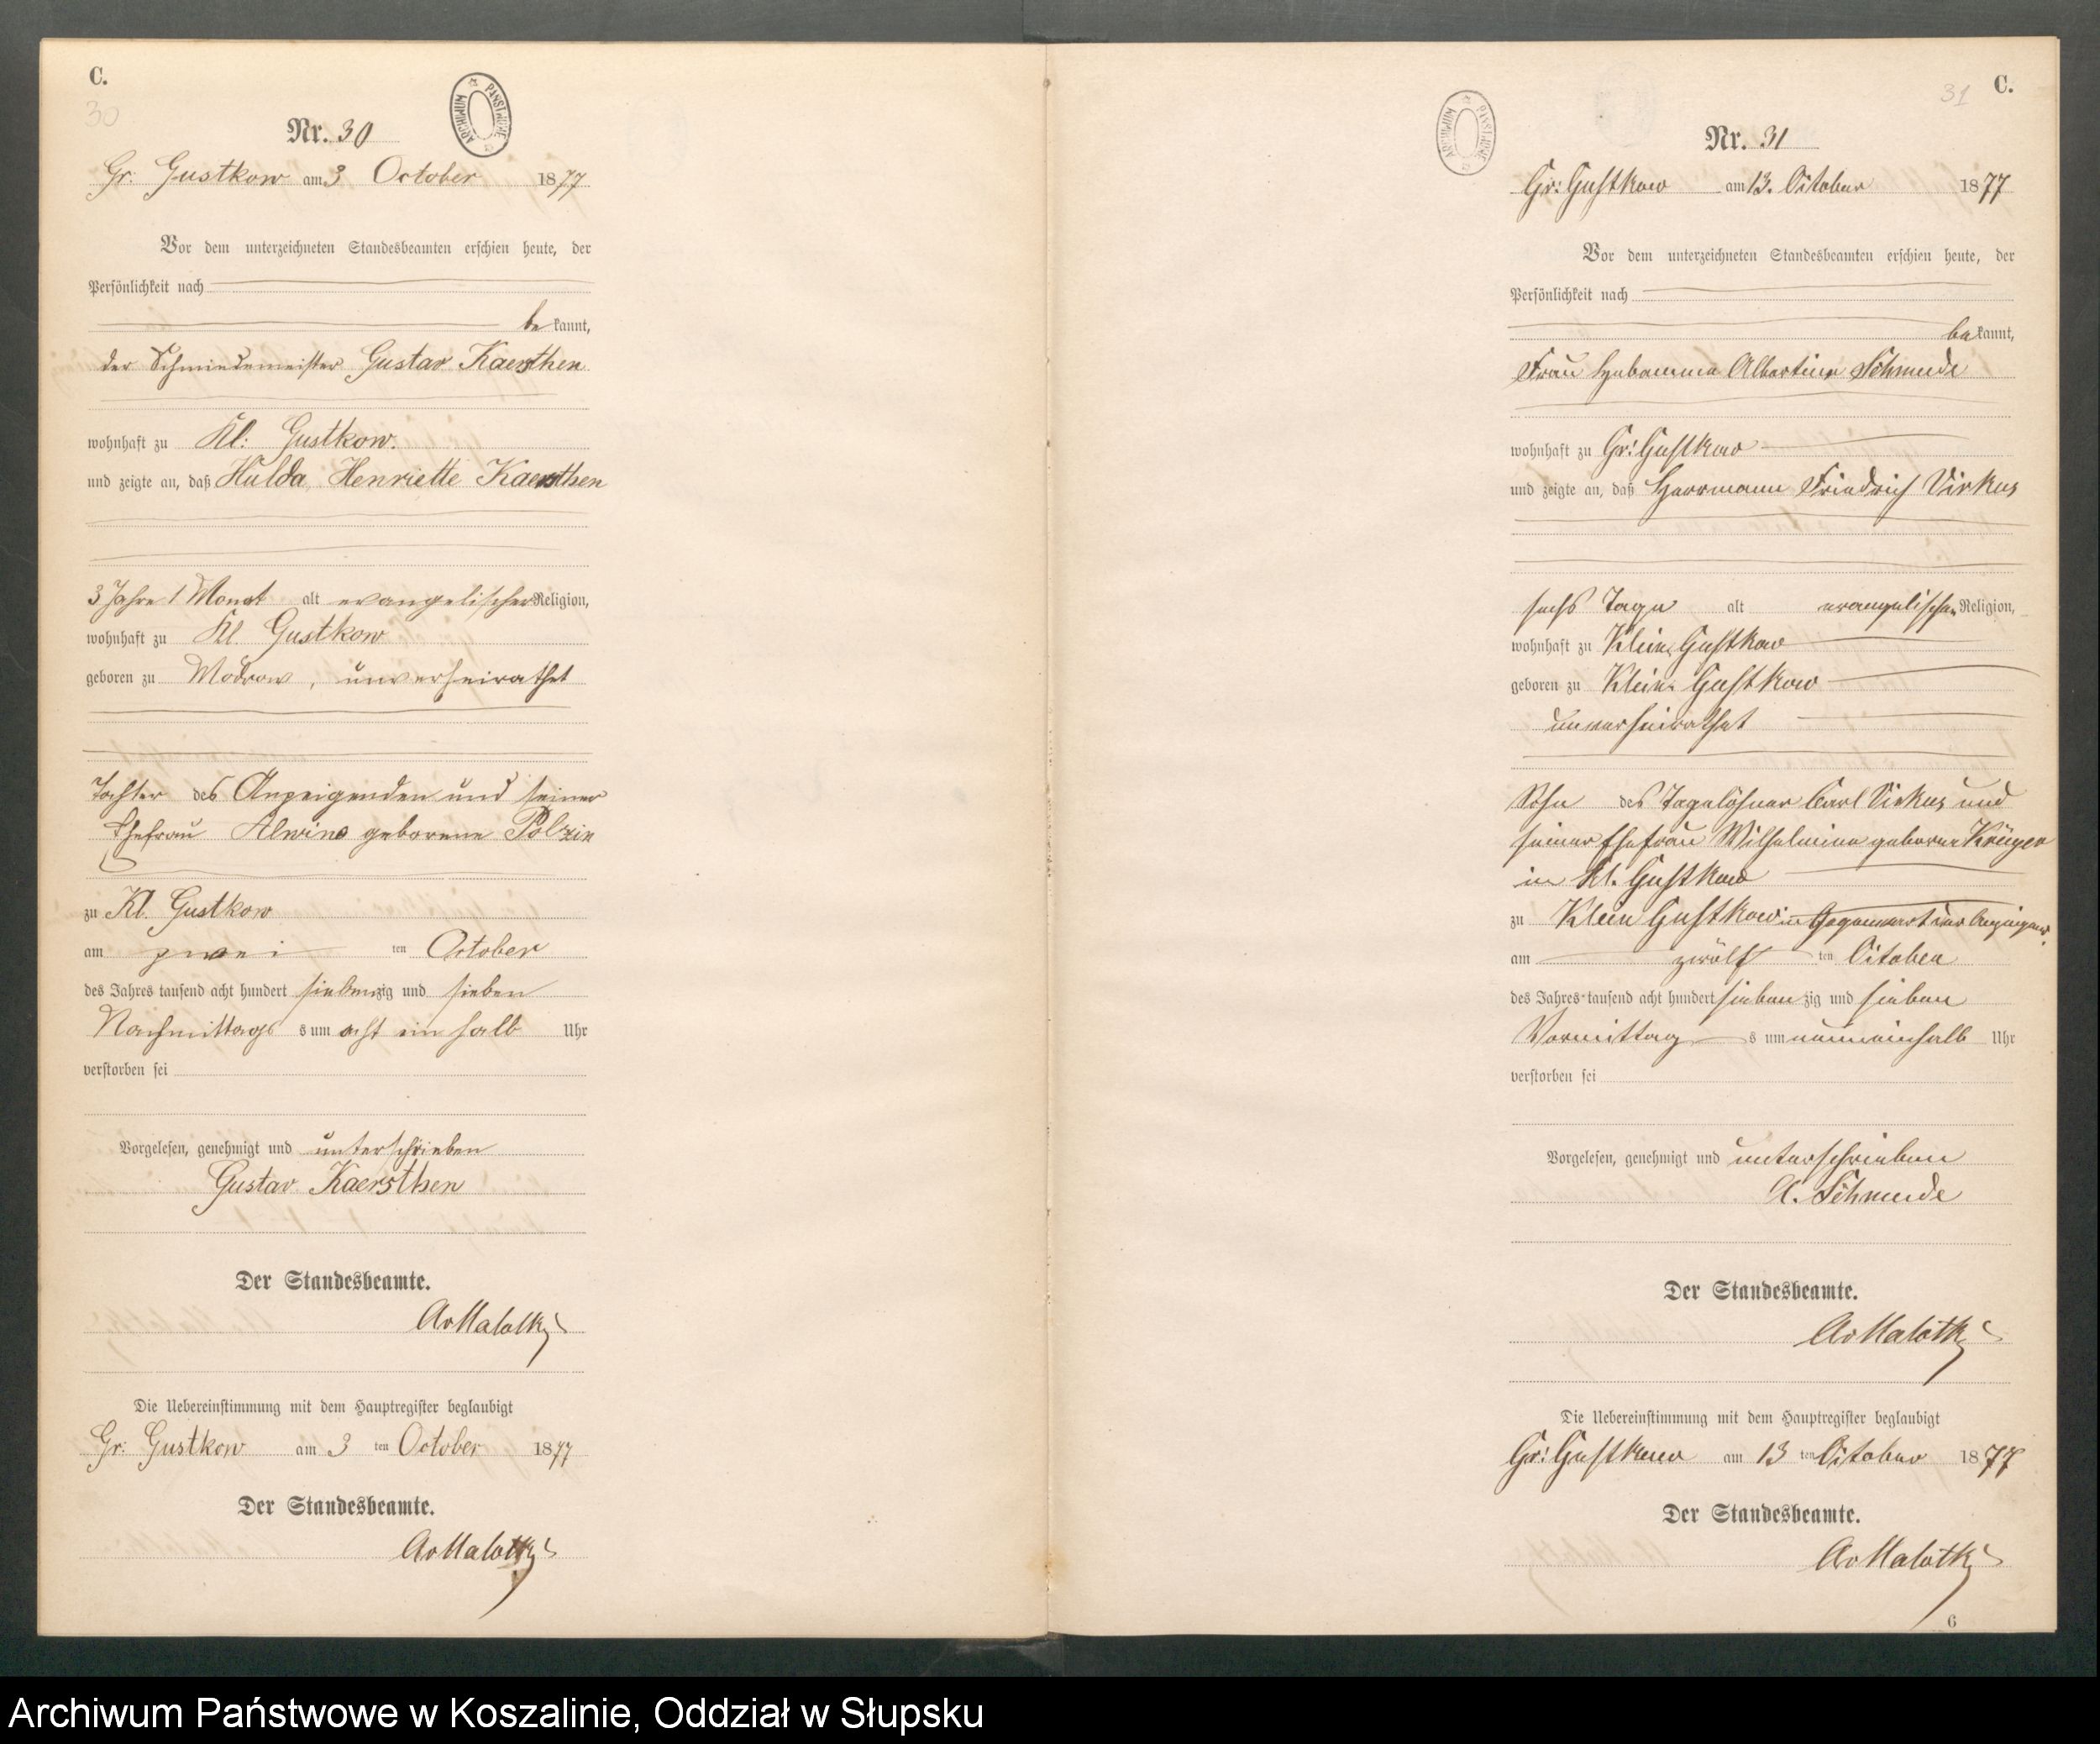 C.
30
ARCHIWUM PAŃSTWOWE
Nr. 30
Gr: Gustkow am 3 October 1877
Vor dem unterzeichneten Standesbeamten erschien heute, der
Persönlichkeit nach
be kannt,
der Schmiedemeister Gustav Kaersthen
wohnhaft zu Kl: Gustkow.
und zeigte an, daß Hulda Henriette Kaersthen
3 Jahre 1 Monat alt evangelischer Religion,
wohnhaft zu Kl. Gustkow
geboren zu Modrow, unverheirathet
Tochter des Anzeigenden und seiner
Ehefrau Alwine geborene Polzin
zu Kl. Gustkow
am zwei ten October
des Jahres tausend acht hundert siebenzig und sieben
Nachmittags s um acht ein halb Uhr
verstorben sei
Vorgelesen, genehmigt und unterschrieben
Gustav Kaersthen
Der Standesbeamte.
AvMalotky
Die Uebereinstimmung mit dem Hauptregister beglaubigt
Gr: Gustkow am 3 ten October 1877
Der Standesbeamte.
AvMalotky
31 C.
ARCHIWUM PAŃSTWOWE
Nr. 31
Gr: Gustkow am 13. October 1877
Vor dem unterzeichneten Standesbeamten erschien heute, der
Persönlichkeit nach
be kannt,
Frau Hebamme Albertine Schmude
wohnhaft zu Gr: Gustkow
und zeigte an, daß Herrmann Friedrich Virkus
sechs Tage alt evangelischer Religion,
wohnhaft zu Klein Gustkow
geboren zu Klein Gustkow
unverheirathet
Sohn des Tagelöhner Carl Virkus und
seiner Ehefrau Wilhelmine geborne Krüger
in Kl. Gustkow
zu Klein Gustkow in Gegenwart der
am zwölf ten October
des Jahres tausend acht hundert sieben zig und sieben
Vormittag s um neuneinhalb Uhr
verstorben sei
Vorgelesen, genehmigt und unterschrieben
A. Schmude
Der Standesbeamte.
AvMalotky
Die Uebereinstimmung mit dem Hauptregister beglaubigt
Gr: Gustkow am 13 ten October 1877
Der Standesbeamte.
AvMalotky
6
Archiwum Państwowe w Koszalinie, Oddział w Słupsku